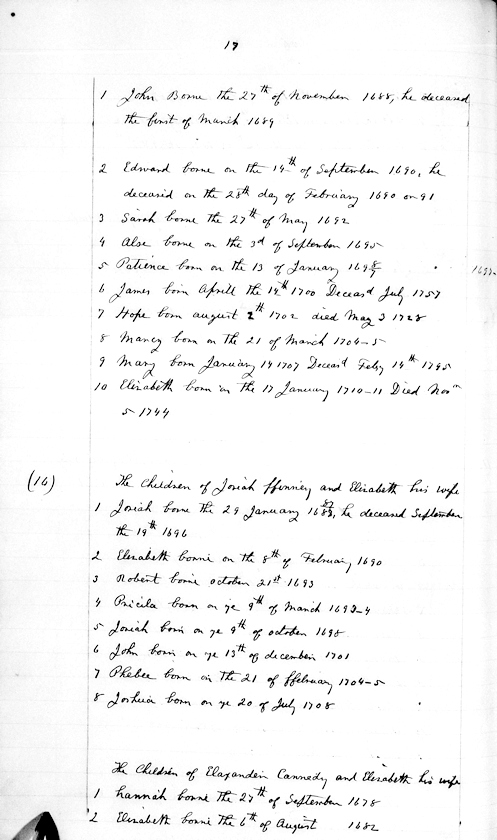 17
1 John Borne the 27th of November 1688, he deceased
the first of March 1689
2 Edward borne on the 14th of September 1690, he
deceased on the 28th day of February 1690 or 91
3 Sarah borne the 27th of May 1692
4 Alse borne on the 3d of September 1695
5 Patience born on the 13 of January 169
6 James born Aprill the 14th 1700 Deceasd July 1757
7 Hope born august 2th 1702 died May 3 1728
8 Mancy born on the 21 of March 1704-5
9 Mary born January 14 1707 Deceasd Feby 14th 1795
10 Elizabeth born in the 17 January 1710-11 Died Nov
5 1744
(16)
The Children of Josiah ffinney and Elizabeth his wife
1 Josiah borne the 29 January he deceased September
the 19th 1696
2 Elizabeth borne on the 8th of February 1690
3 Robert borne october 21st 1693
4 Pricila born on ye 9th of March 1693-4
5 Josiah born on ye 9th of october 1698
6 John born on ye 13th of december 1701
7 Phebee born in the 21 of ffebruary 1704-5
8 Joshua born on ye 20 of July 1708
The Children of Elaxander Cannedy and Elizabeth his wife
1 hannah borne the 27th of September 1678
2 Elizabeth borne the 6th of August 1682